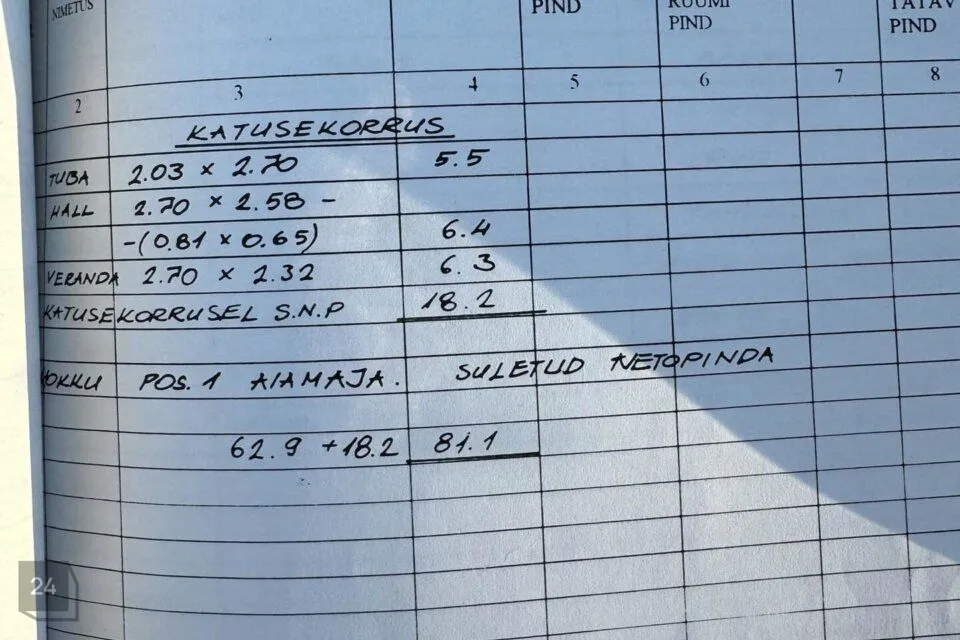 NIMETUS PIND RUUMI PIND PIND
2 3 4 5 6 7 8
KATUSEKORRUS
TUBA 2.03 x 2.70 5.5
HALL 2.70 x 2.58 -
-(0.81 x 0.65) 6.4
VERANDA 2.70 x 2.32 6.3
KATUSEKORRUSEL S.N.P 18.2
KOKKU POS. 1 AIAMAJA. SULETUD NETOPINDA
62.9 + 18.2 81.1
24